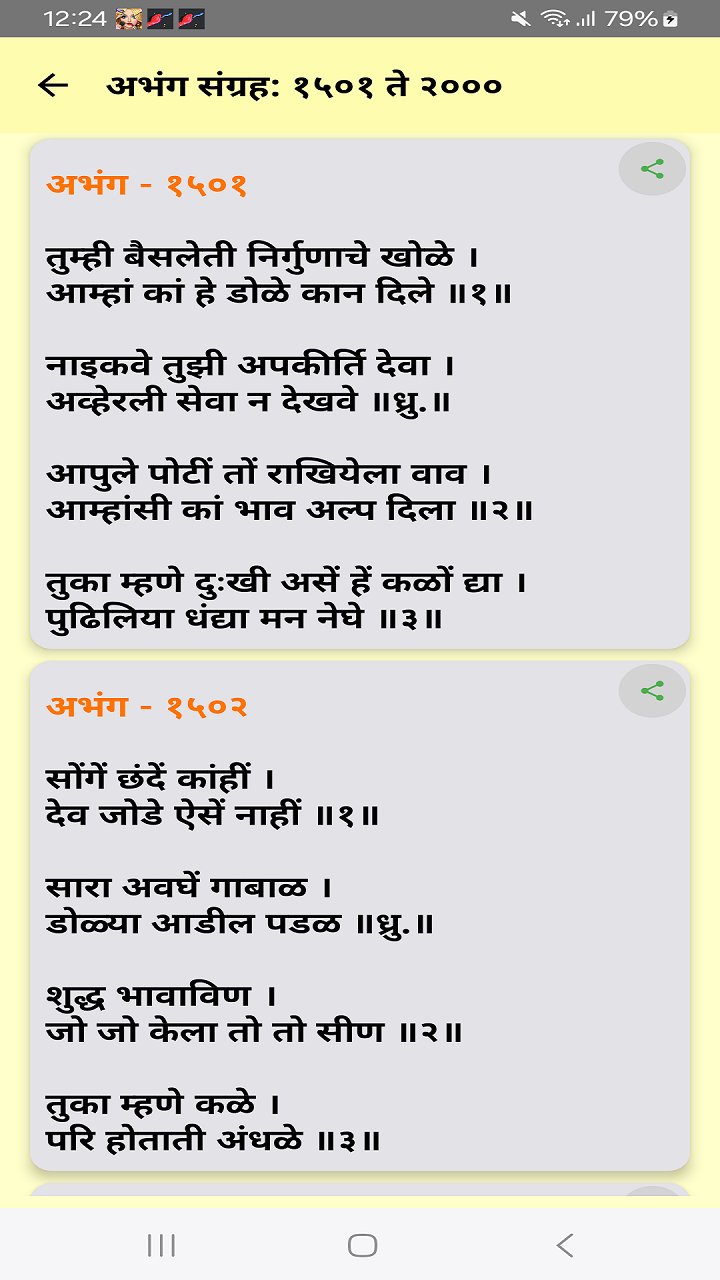 12:24
79%
अभंग संग्रह: १५०१ ते २०००
अभंग - १५०१
तुम्ही बैसलेती निर्गुणाचे खोळे ।
आम्हां कां हे डोळे कान दिले ॥१॥
नाइकवे तुझी अपकीर्ति देवा ।
अव्हेरली सेवा न देखवे ॥ध्रु.॥
आपुले पोटीं तों राखियेला वाव ।
आम्हांसी कां भाव अल्प दिला ॥२॥
तुका म्हणे दुःखी असें हें कळों द्या ।
पुढिलिया धंद्या मन नेघे ॥३॥
अभंग - १५०२
सोंगें छंदें कांहीं ।
देव जोडे ऐसें नाहीं ॥१॥
सारा अवघें गाबाळ ।
डोळ्या आडील पडळ ॥ध्रु.॥
शुद्ध भावाविण ।
जो जो केला तो तो सीण ॥२॥
तुका म्हणे कळे ।
परि होताती अंधळे ॥३॥